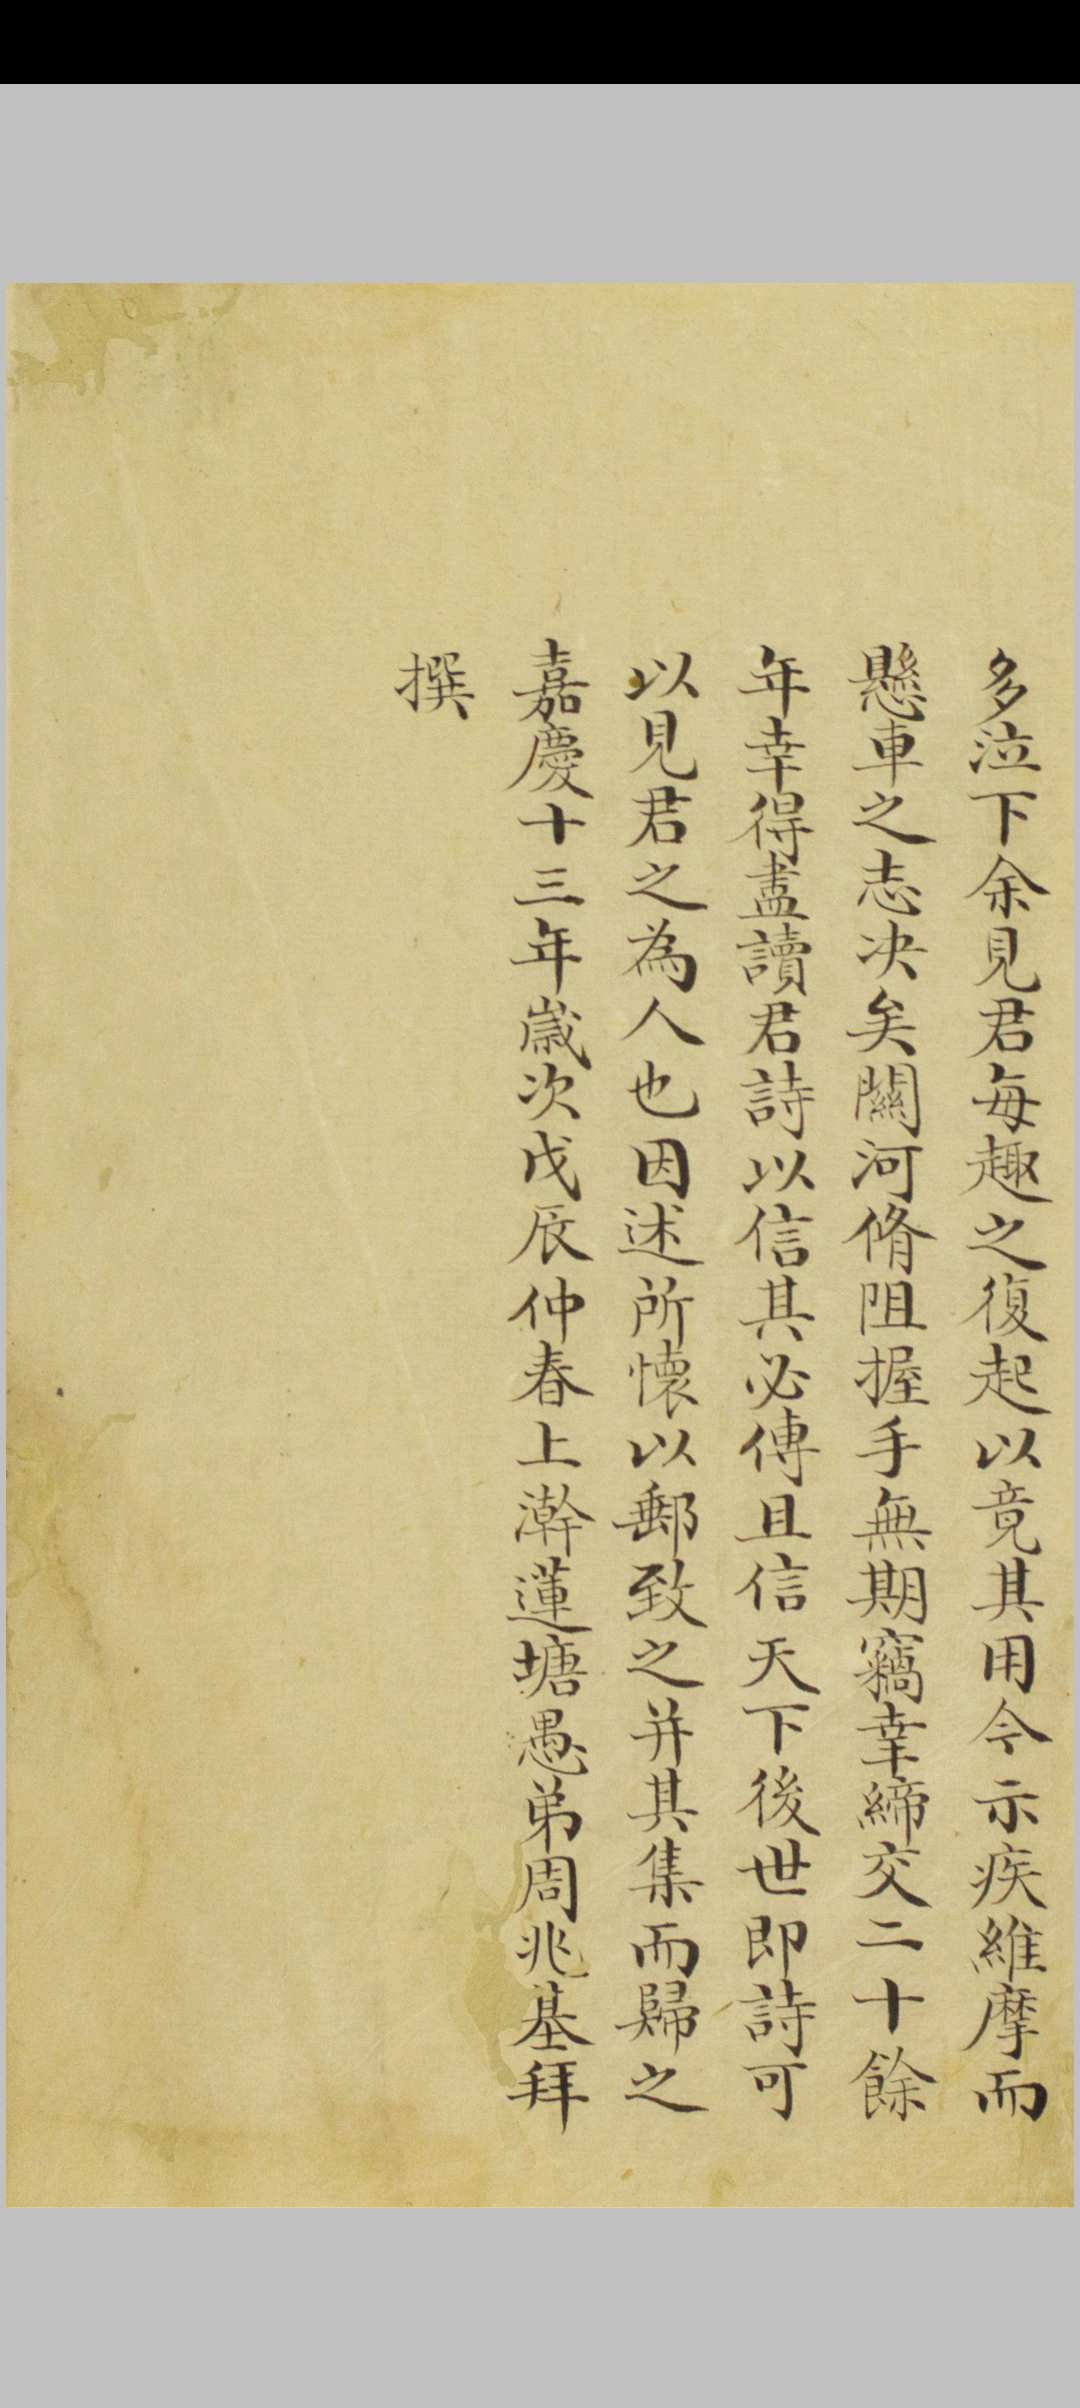 多泣下余見君每趣之復起以竟其用今示疾維摩而
懸車之志决矣關河脩阻握手無期竊幸締交二十餘
年幸得盡讀君詩以信其必傳且信天下後世即詩可
以見君之為人也因述所懷以郵致之并其集而歸之
嘉慶十三年歲次戊辰仲春上澣蓮塘愚弟周兆基拜
撰